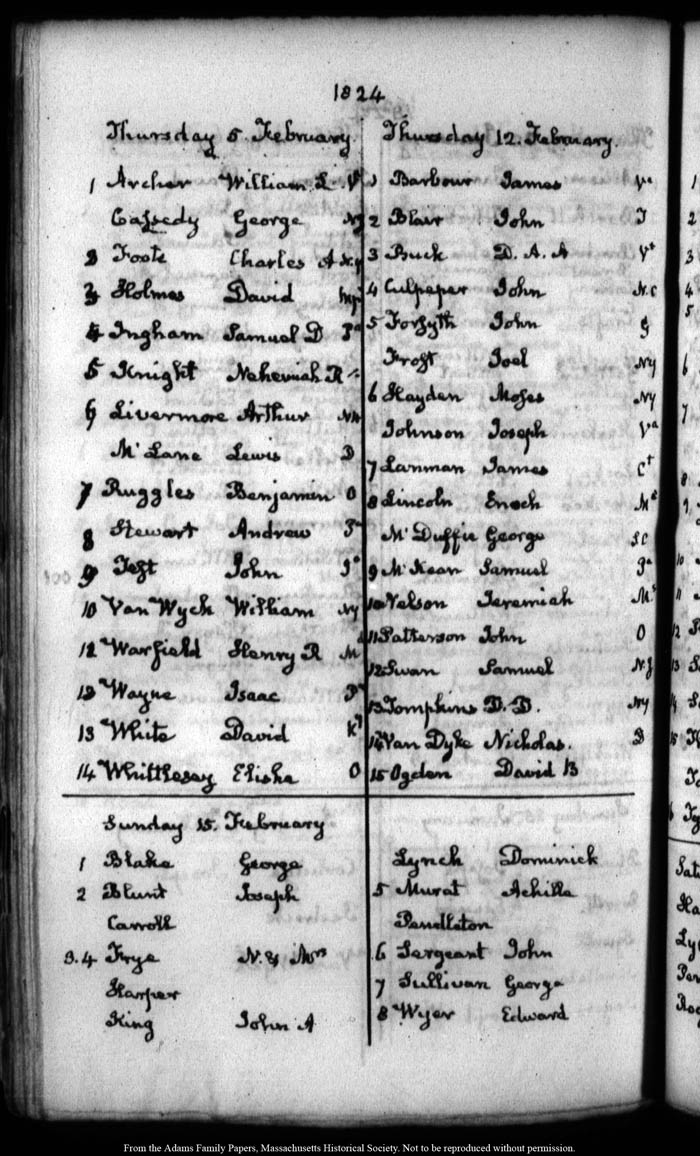 1824
Thursday 5. February.
1 Archer William. L. Va
Cassedy George NJ
2 Foote Charles A NY
3 Holmes David Mpi
4 Ingham Samuel D Pa
5 Knight Nehemiah R
6 Livermore Arthur NH
McLane Lewis D
7 Ruggles Benjamin O
8 Stewart Andrew Pa
9 Test John Ia
10 Van Wyck William NY
12 Warfield Henry R M
12 Wayne Isaac Pa
13 White David Ky
14 Whittlesey Elisha O
Thursday 12. February.
1 Barbour James Va
2 Blair John T
3 Buck D. A. A Vt
4 Culpeper John N.C
5 Forsyth John G
Frost Joel NY
6 Hayden Moses NY
Johnson Joseph Va
7 Lanman James Ct
8 Lincoln Enoch Me
McDuffie George SC
9 McKean Samuel Pa
10 Nelson Jeremiah Ms
11 Patterson John O
12 Swan Samuel N.J
13 Tompkins D. D. NY
14 Van Dyke Nicholas. D
15 Ogden David B
Sunday 15. February
1 Blake George
2 Blunt Joseph
Carroll
3.4 Frye N. & Mrs
Harper
King John A
Lynch Dominick
5 Murat Achille
Pendleton
6 Sergeant John
7 Sullivan George
8 Wyer Edward
From the Adams Family Papers, Massachusetts Historical Society. Not to be reproduced without permission.